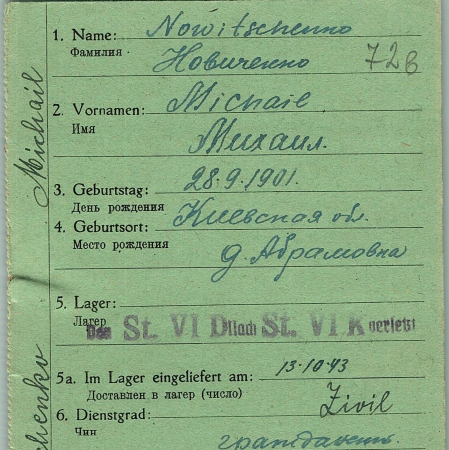 1. Name: Nowitschenko
Фамилия Новиченко
72 в
2. Vornamen: Michail
Имя Михаил.
3. Geburtstag: 28.9.1901.
День рождения
4. Geburtsort: Киевская обл.
Место рождения д. Абрамовка
5. Lager:
Лагер
St. VI D nach St. VI K versetzt
5a. Im Lager eingeliefert am: 13.10.43
Доставлен в лагер (число)
6. Dienstgrad: Zivil
Чин
Michail